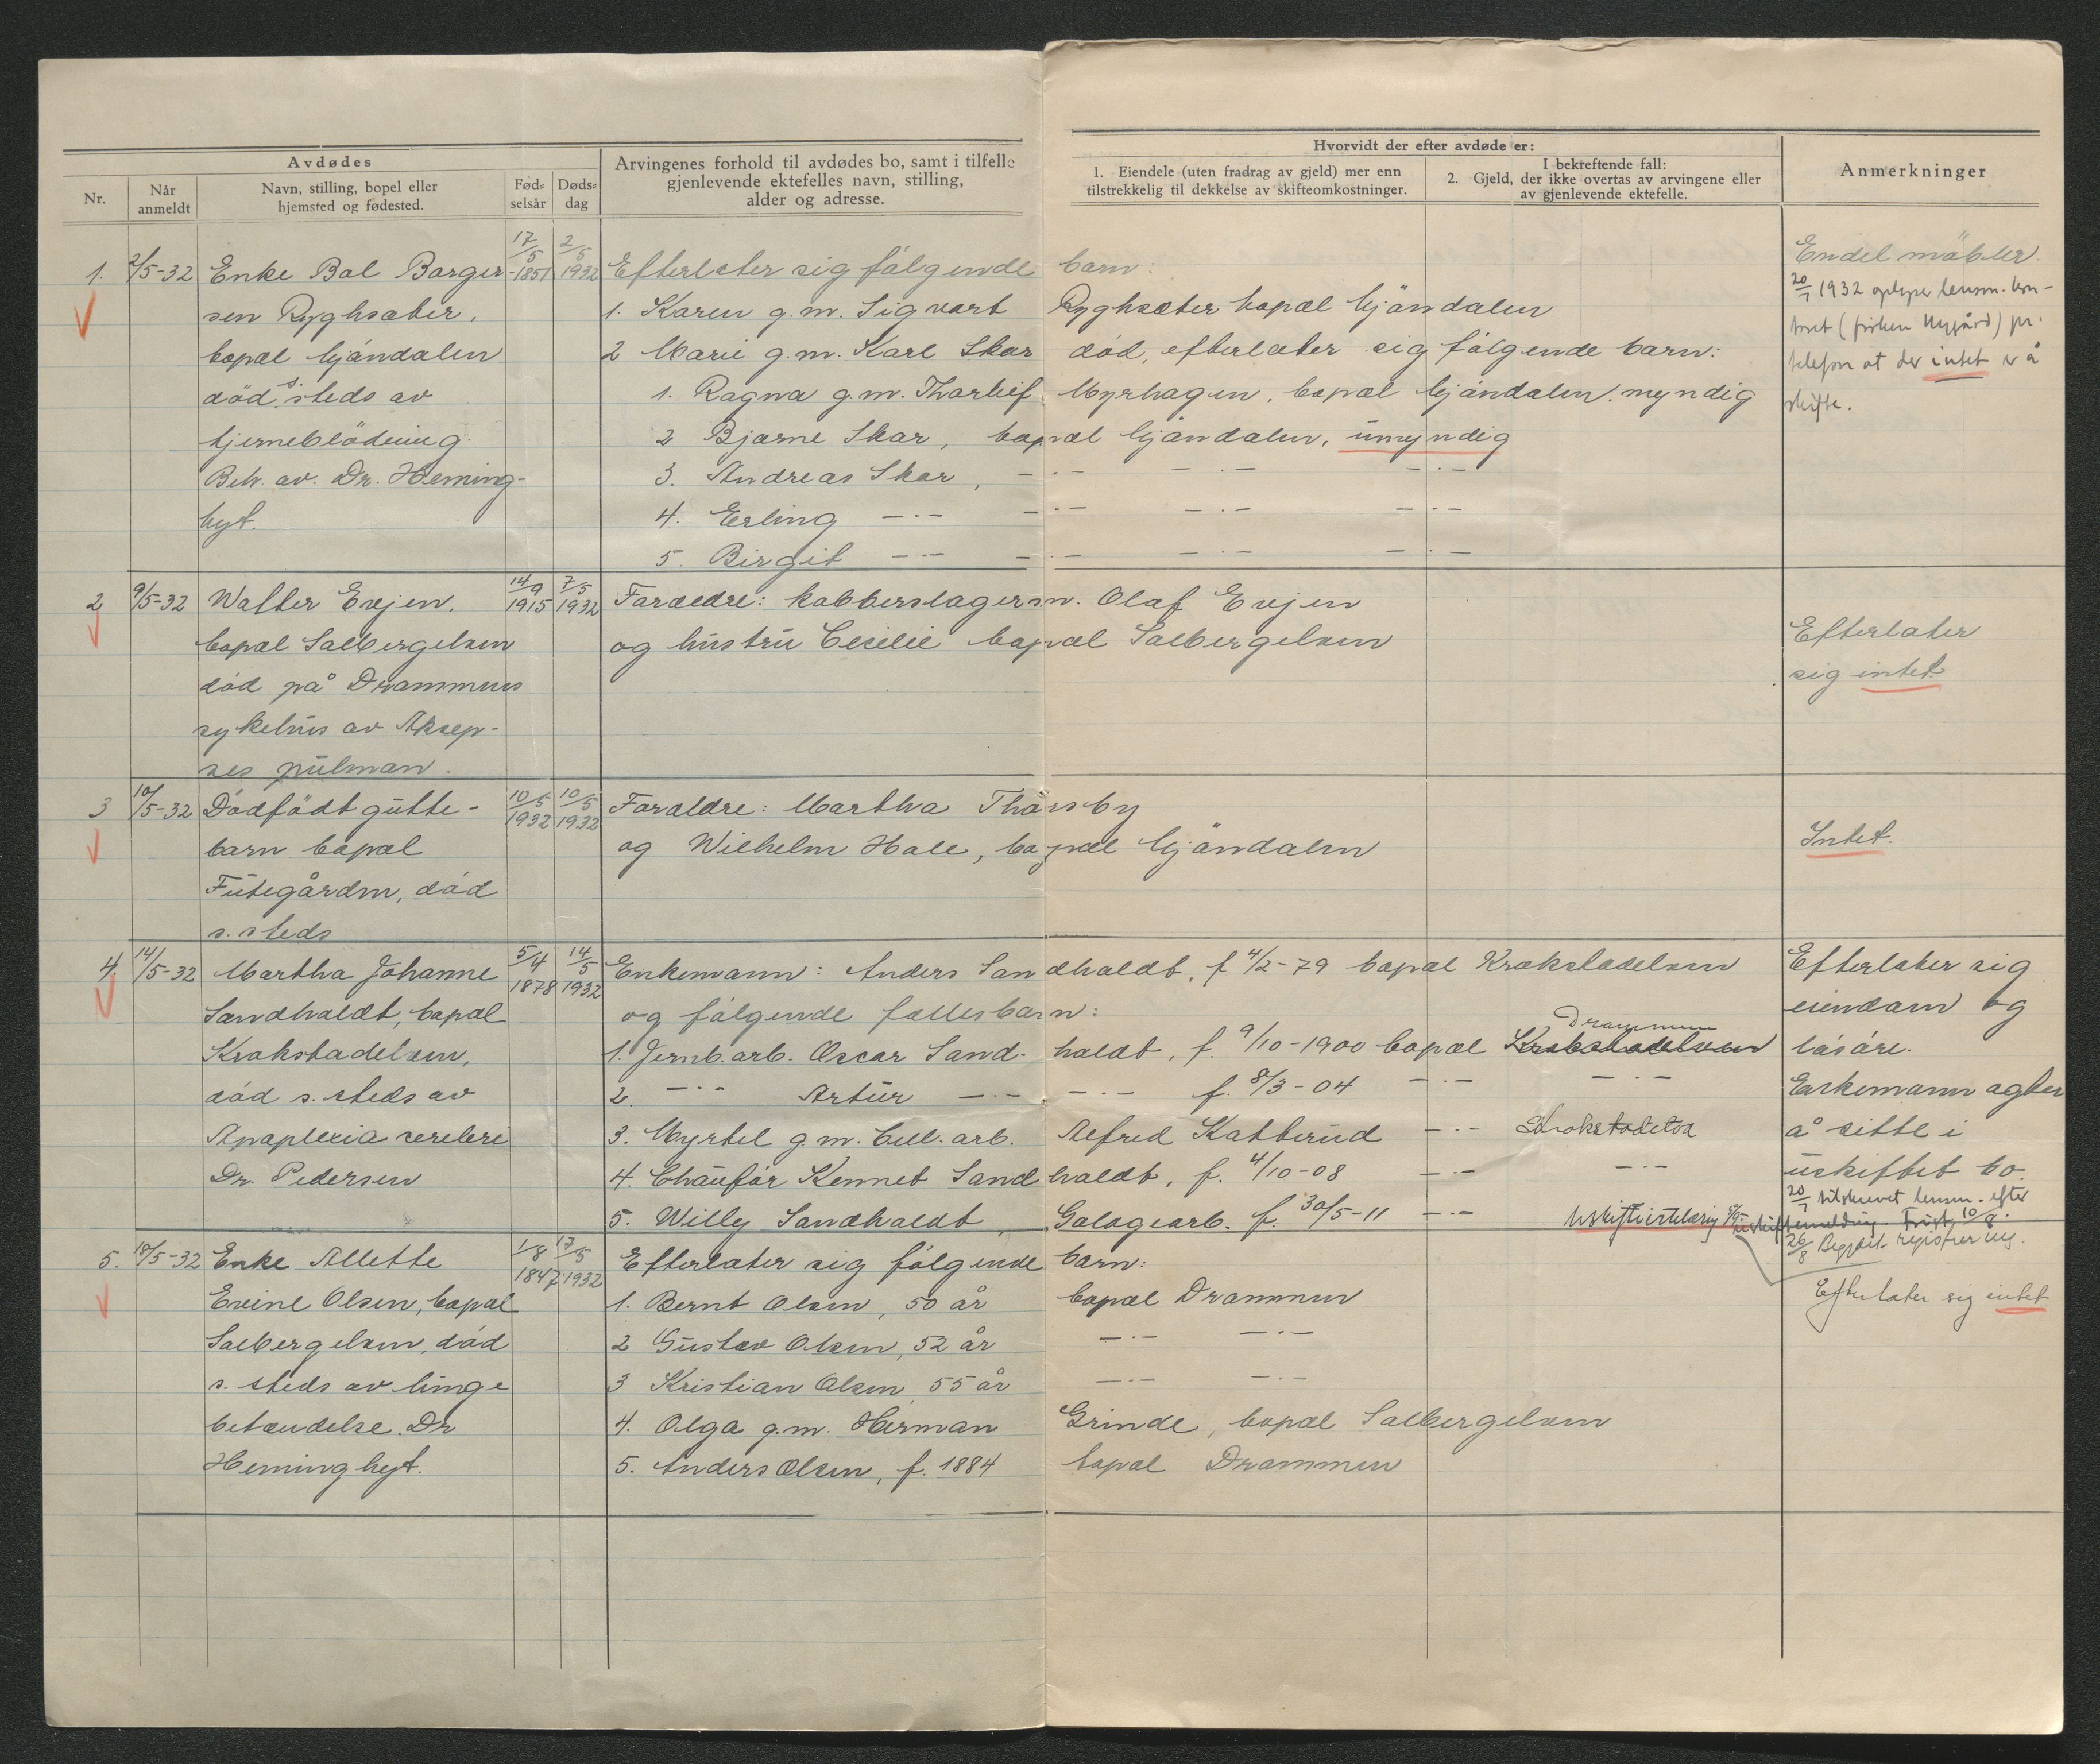 Avdødes
Nr.
Når anmeldt
Navn, stilling, bopel eller hjemsted og fødested.
Fød-selsår
Døds-dag
Arvingenes forhold til avdødes bo, samt i tilfelle
gjenlevende ektefelles navn, stilling,
alder og adresse.
Hvorvidt der efter avdøde er:
1. Eiendele (uten fradrag av gjeld) mer enn
tilstrekkelig til dekkelse av skifteomkostninger.
I bekreftende fall:
2. Gjeld, der ikke overtas av arvingene eller
av gjenlevende ektefelle.
Anmerkninger
1. 2/5-32 Enke Bol Borger- 17/5 1851 2/5 1932 Efterlater sig følgende barn:
sen Ryghsæter, 1. Karen g.m. Sigvart Ryghsæter bopæl Mjøndalen
bopæl Mjøndalen 2 Marie g.m. Karl Skar død, efterlater sig følgende barn:
død s. steds av 1. Ragna g.m. Thorleif Myrhagen, bopæl Mjøndalen. myndig
hjerneblødning. 2 Bjarne Skar, bopæl Mjøndalen, umyndig
Beh. av. Dr. Heming- 3. Andreas Skar, -"- -"- -"-
hyt. 4. Erling -"- -"- -"- -"-
5. Birgit -"- -"- -"- -"-
Endel møbler.
20/7 1932 oplyser lensm. kon-
toret (frøken Nygård) pr.
telefon at der intet er å
skifte.
2 9/5-32 Walter Evjen, 14/9 1915 7/5 1932 Forældre: kobberslagersv. Olaf Evjen
bopæl Solbergelven og hustru Cecilie bopæl Solbergelven
død på Drammens
sykehus av
pulmon.
Efterlater
sig intet
3 10/5-32 Dødfødt gutte- 10/5 1932 10/5 1932 Foraldre: Martha Thorsby
barn bopæl og Wilhelm Hale, bopæl Mjøndalen
Futegården, død
s. steds
Intet.
4. 14/5-32 Martha Johanne 5/4 1878 14/5 1932 Enkemann: Anders Sandholdt, f 4/2-79 bopæl Krokstadelven
Sandholdt, bopæl og følgende fellesbarn:
Krokstadelven, 1. Jernb. arb. Oscar Sandholdt, f. 9/10-1900 bopæl Krokstadelven Drammen
død s. steds av 2. -"- Artur -"- -"- f. 8/3-04 -"- -"-
Apoplexia cerebri 3. Myrtel g.m. Cell. arb. Alfred Katterud -"- Krokstadelva
Dr. Pedersen 4. Chauffør Kennet Sandholdt, f. 4/10-08 -"- -"-
5. Willy Sandholdt, Galogearb. f. 30/5-11 -"-
Efterlater sig
eiendom og
løsøre.
Enkemann agter
å sitte i
uskiftet bo.
20/7 tilskrevet lensm. efter
uskiftemelding. Frist 10/8.
26/8 Begjært registrering.
5. 18/5-32 Enke Allette 1/8 1847 17/5 1932 Efterlater sig følgende barn:
Evine Olsen, bopæl 1. Bernt Olsen, 50 år bopæl Drammen
Solbergelven, død 2 Gustav Olsen, 52 år -"- -"-
s. steds av lunge 3 Kristian Olsen 55 år -"- -"-
betændelse. Dr 4. Olga g.m. Herman Grinde, bopæl Solbergelven
Heminghyt. 5. Anders Olsen, f. 1884 bopæl Drammen
Efterlater sig intet